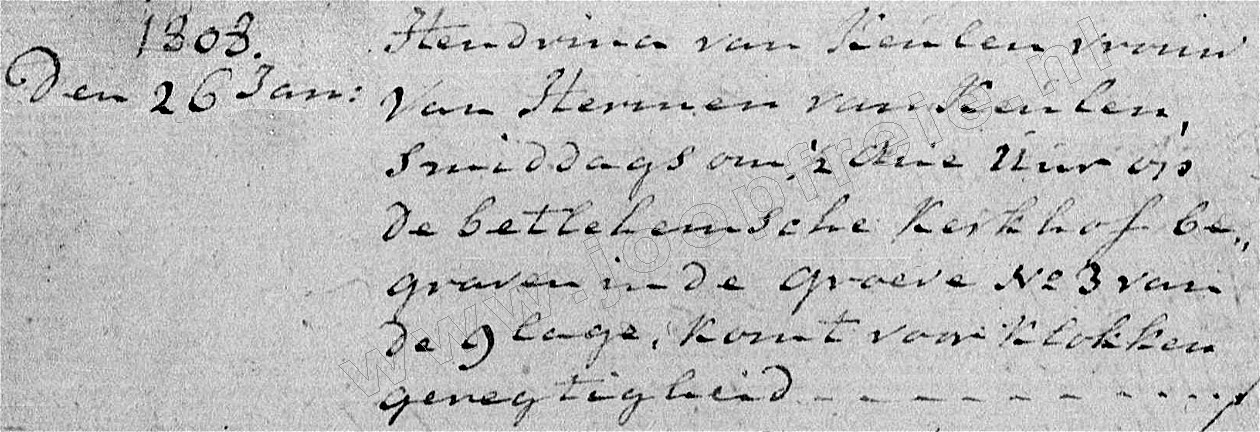 1803.
Den 26 Jan:
Hendrina van Keulen vrouw
Van Hermen van Keulen,
Smiddags om drie Uur op
de betlehemsche Kerkhof be„
graven in de groeve No 3 van
de 9 lage, komt voor Klokken
geregtigheid
www.joopfreie.nl